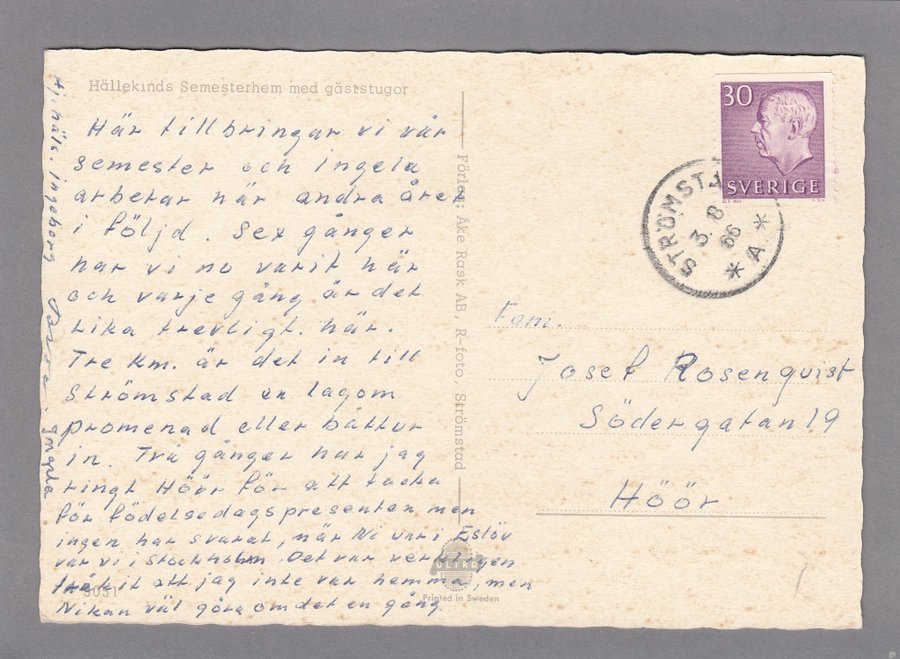 Hällekinds Semesterhem med gäststugor
Här tillbringar vi vår
semester och Ingela
arbetar här andra året
i följd. Sex gånger
har vi nu varit här
och varje gång är det
lika trevligt här.
Tre km. är det in till
Strömstad en lagom
promenad eller båttur
in. Två gånger har jag
ringt Höör för att tacka
för födelsedagspresenten men
ingen har svarat, när Ni var i Eslöv
var vi i Stockholm. Det var verkligen
tråkigt att jag inte var hemma, men
Ni kan väl göra om det en gång.
Hj. häls. Ingeborg Ingela
Förlag: Åke Rask AB, R-foto, Strömstad
30
SVERIGE
STRÖMSTA
3. 8
66
* A *
Fam.
Josef Rosenquist
Södergatan 19
Höör
3051
ULTRA
Printed in Sweden